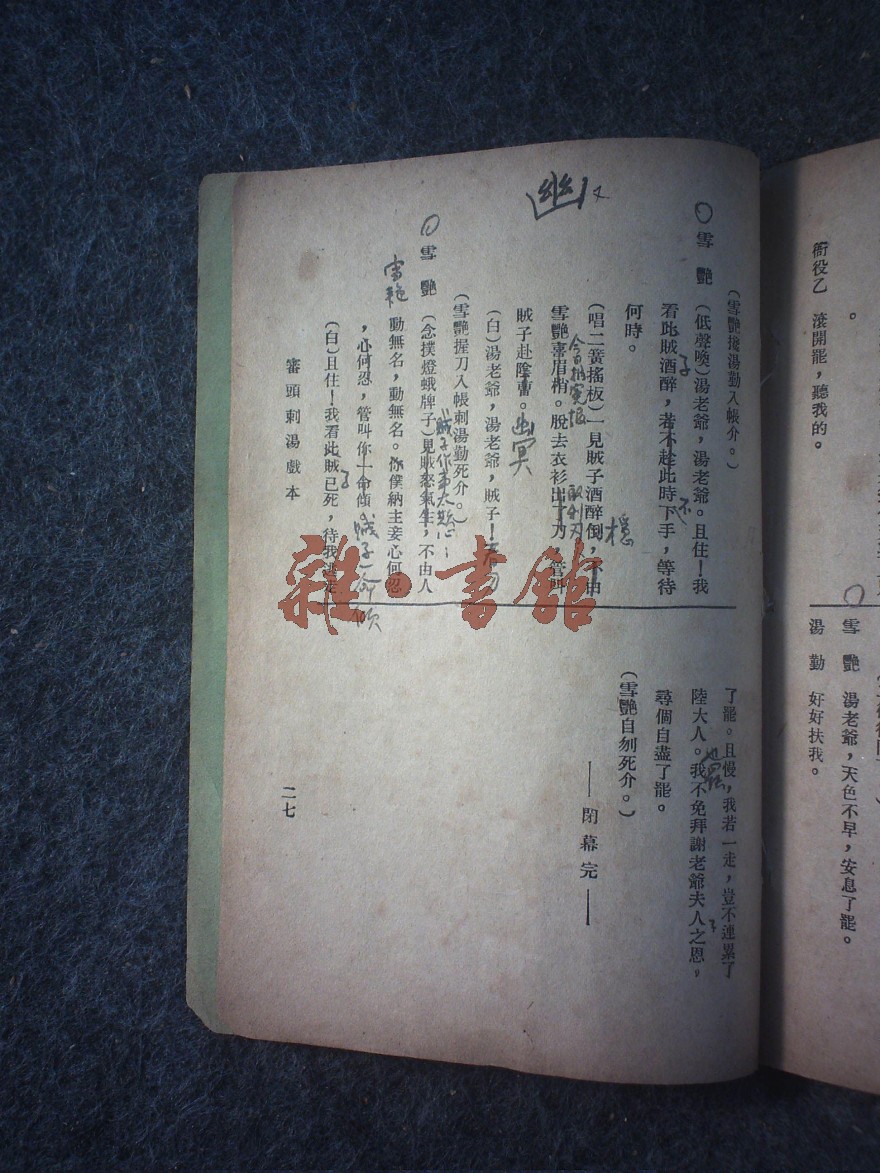 衙役乙 滾開罷，聽我的。
雪艷 湯老爺，天色不早，安息了罷。
湯勤 好好扶我。
幽
（雪艷攙湯勤入帳介。）
雪艷（低聲喚）湯老爺，湯老爺。且住！我
看此賊酒醉，若不趁此時下手，等待
子
不
何時。
（唱二黃搖板）一見賊子酒醉倒，不由
穩
雪艷喜眉梢。脫去衣衫出了刀，管叫
賊子赴陰曹。
幽冥
（白）湯老爺，湯老爺，賊子！
（雪艷握刀入帳刺湯勤死介。）
賊子作事太
雪艷（念撲燈蛾牌子）見賊怒氣生，不由人
動無名，動無名。你僕納主妾心何忍
雪艷
，心何忍，管叫你一命傾。
賊子一命傾
（白）且住！我看此賊已死，待我逃走
子
審頭刺湯戲本
了罷。且慢，我若一走，豈不連累了
陸大人。我不免拜謝老爺夫人之恩，
也罷
尋個自盡了罷。
（雪艷自刎死介。）
——閉幕完——
二七
雜·書館